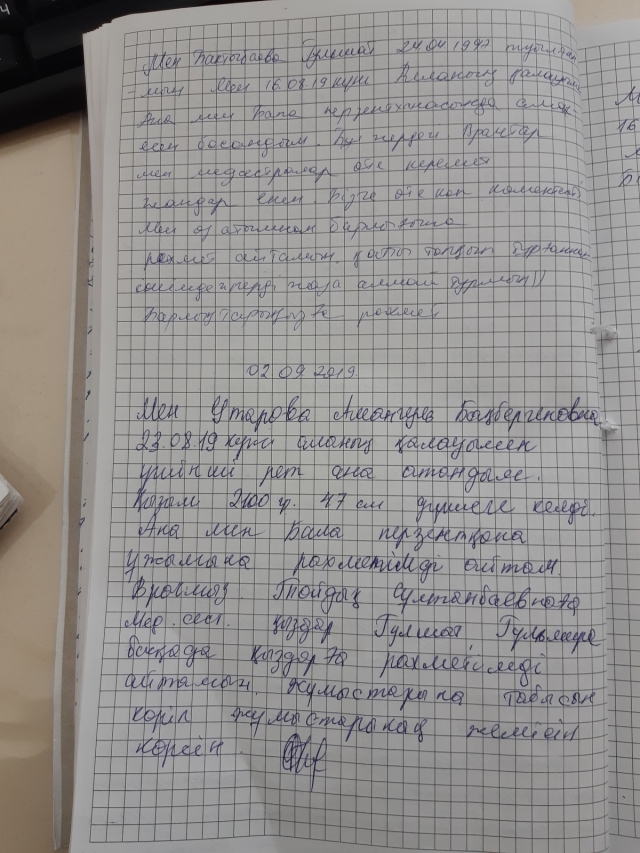 Мен Бактыбаева Гулшат 24.04.1997 туылған
-мын Мен 16.08.19 күні Алланың қалауымен
Ана мен Бала перзентханасында аман
есен босандым. Бұл жердегі Врачтар
мен медсестралар өте керемет
жандар екен. Бізге өте көп көмектесті
Мен өз атымнан барлығына
рахмет айтамын.
Барлықтарыңызға рахмет
02 09 2019.
Мен Утарова Амангуль
23.08.19 күні алланың қалауымен
үшінші рет ана атандым.
Қызым 2100 гр. 47 см дүниеге келді.
Ана мен Бала перзентхана
Ұжымына рахметімді айтам
Врачымыз Тойдық Султанбаевнаға
Мед. сест. қыздар Гулшат, Гульмира
басқада қыздарға рахметімді
айтамын. Жұмыстарына табысын
көріп жұмыстарының жемісін
көрсін.